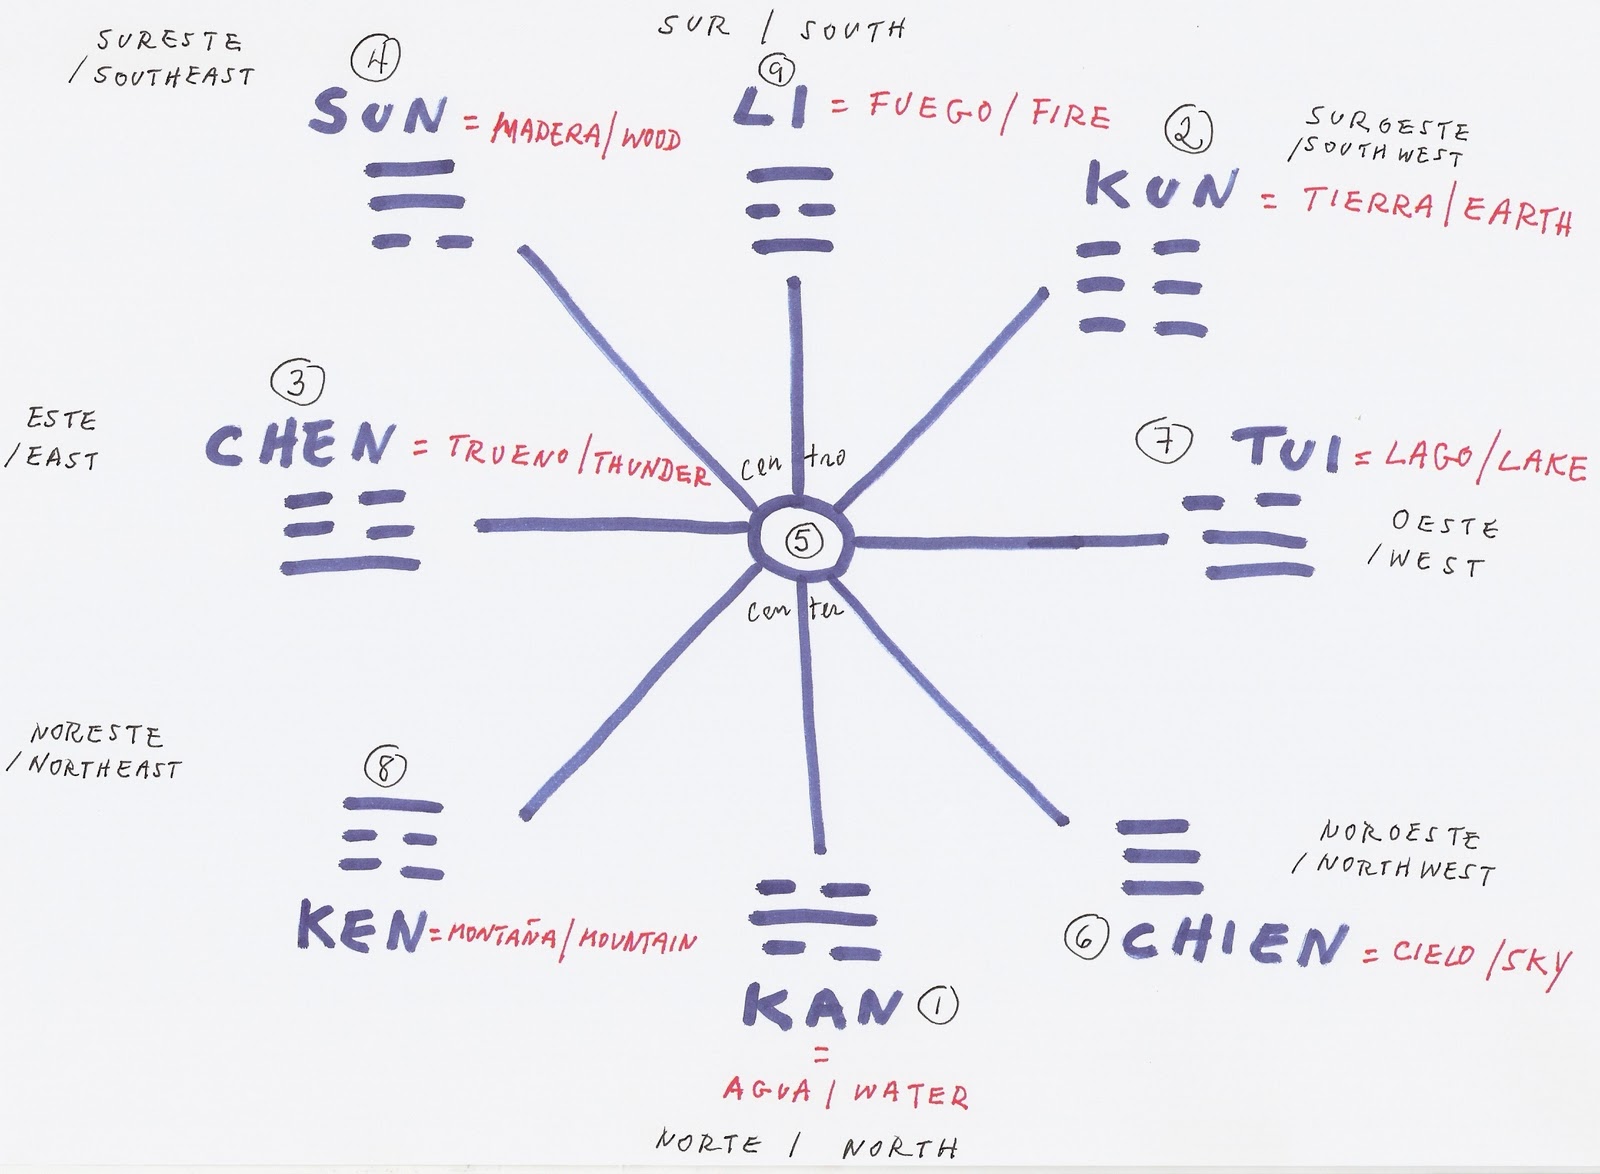 SUR / SOUTH
SURESTE
/ SOUTHEAST
4
SUN = MADERA/WOOD
9
LI = FUEGO/FIRE
2
SUROESTE
/SOUTHWEST
KUN = TIERRA/EARTH
3
ESTE
/EAST
CHEN = TRUENO/THUNDER
7 TUI = LAGO/LAKE
OESTE
/WEST
centro
5
center
NORESTE
/NORTHEAST
8
KEN=MONTAÑA/MOUNTAIN
NOROESTE
/NORTHWEST
6 CHIEN = CIELO/SKY
KAN 1
=
AGUA/WATER
NORTE / NORTH